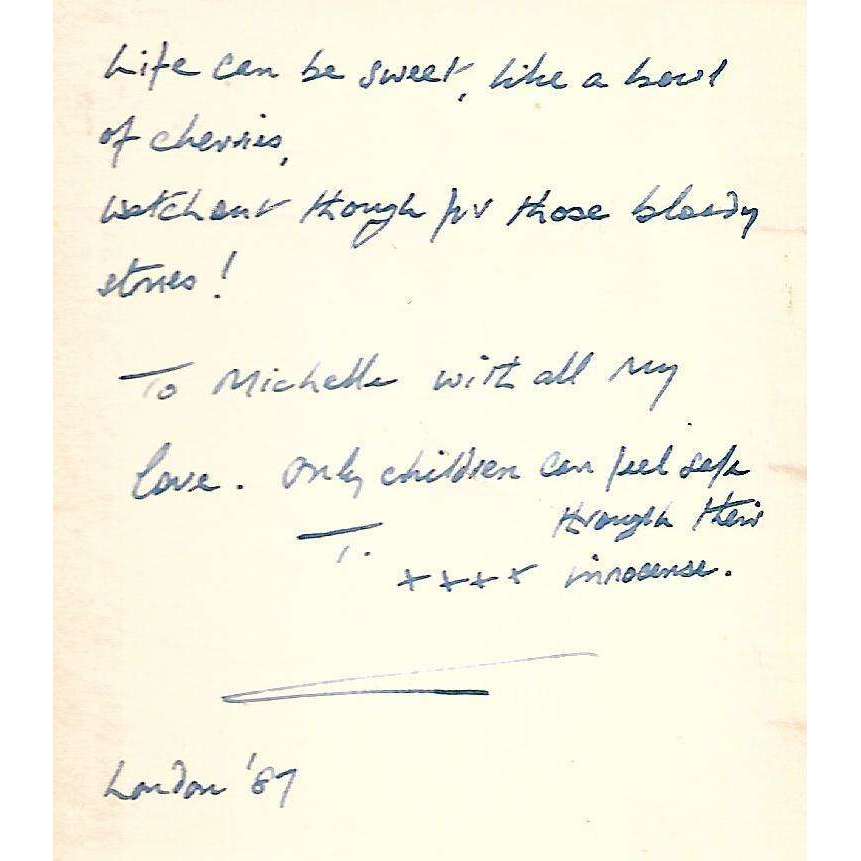 Life can be sweet, like a bowl
of cherries,
watchout though for those bloody
stones!
To Michelle with all my
love. Only children can feel safe
through their
T.
xxxx innocense.
London '87